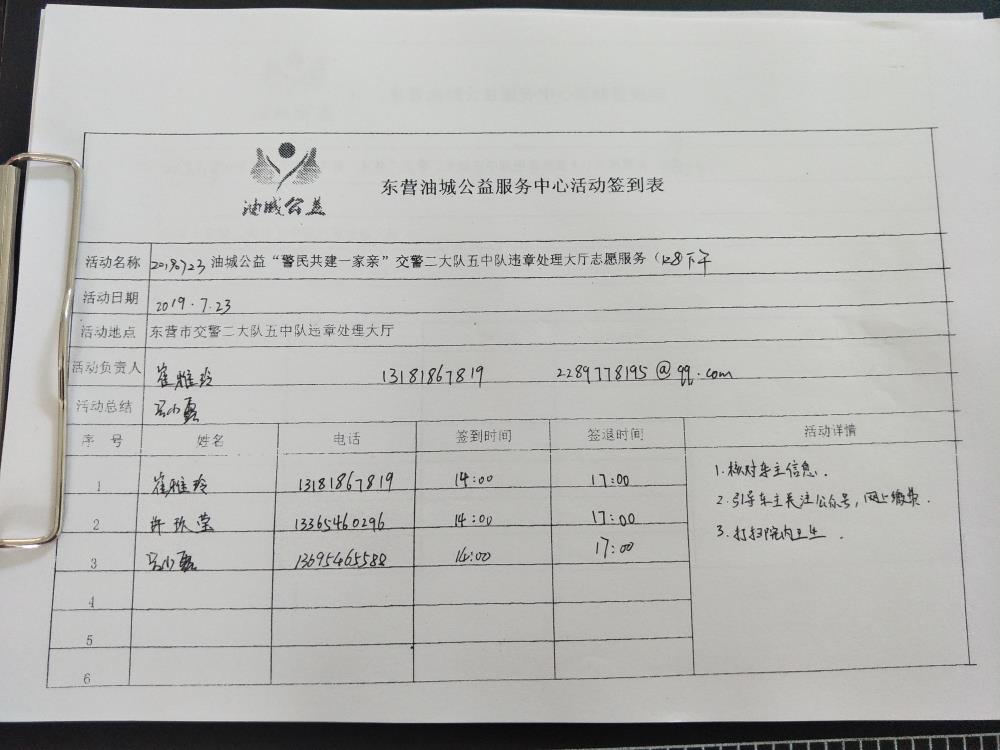 油城公益
东营油城公益服务中心活动签到表
活动名称 20190723 油城公益“警民共建一家亲”交警二大队五中队违章处理大厅志愿服务(128下午
活动日期 2019.7.23
活动地点 东营市交警二大队五中队违章处理大厅
活动负责人 崔雅玲 13181867819 2289778195@qq.com
活动总结 小磊
序号 姓名 电话 签到时间 签退时间 活动详情
1 崔雅玲 13181867819 14:00 17:00
2 许玖莹 13365460296 14:00 17:00
3 小磊 13695465588 14:00 17:00
4
5
6
1.核对车主信息.
2.引导车主关注公众号,网上缴费.
3.打扫院内卫生.